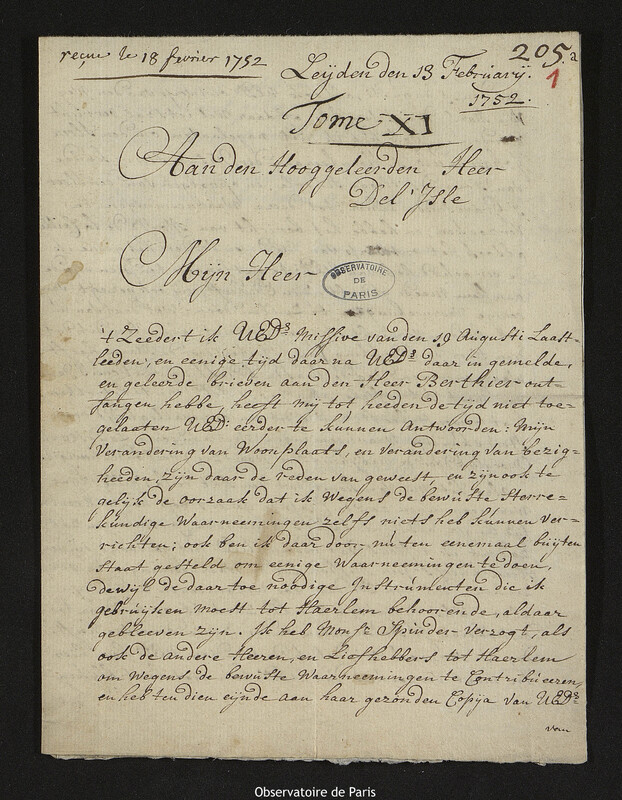 reçue le 18 fevrier 1752
205.a
1
Leijden den 13 Februarij.
1752.
Tome XI
Aan den Hooggeleerden Heer
Del'Isle
Mijn Heer
OBSERVATOIRE
DE
PARIS
't Zeedert ik UEDs Missive van den 19 Augusti Laast-
leeden, en eenige tijd daar na UEDs daar in gemelde,
en geleerde brieven aan den Heer Berthier ont-
fangen hebbe, heeft mij tot heeden de tijd niet toe-
gelaaten UEDs eerder te kunnen Antwoorden: Mijn
verandering van Woonplaats, en verandering van bezig-
heeden, zijn daar de reden van geweest, en zijn ook te
gelijk de oorzaak dat ik Wegens de bewuste Sterre-
kundige Waarneemingen zelfs niets heb kunnen ver-
richten; ook ben ik daar door nu ten eenemaal buijten
Staat gesteld om eenige Waarneemingen te doen,
dewijl de daar toe noodige Instrumenten die ik
gebruijken moest tot Haerlem behoorende, aldaar
gebleeven zijn. Ik heb Monsr Spinder verzogt, als
ook de andere Heeren, en Liefhebbers tot Haerlem
om Wegens de bewuste Waarneemingen te Contribueeren,
en heb ten dien eijnde aan haar gezonden Copija van UEDs
van
Observatoire de Paris